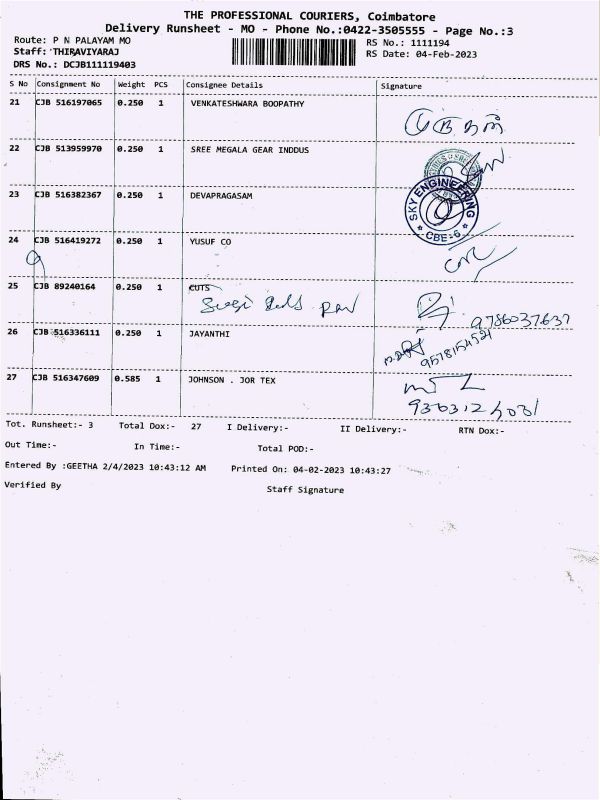 THE PROFESSIONAL COURIERS, Coimbatore
Delivery Runsheet - MO - Phone No.:0422-3505555 - Page No.:3
Route: P N PALAYAM MO
RS No.: 1111194
Staff: THIRAVIYARAJ
RS Date: 04-Feb-2023
DRS No.: DCJB111119403
S No Consignment No Weight PCS Consignee Details Signature
21 CJB 516197065 0.250 1 VENKATESHWARA BOOPATHY
22 CJB 513959970 0.250 1 SREE MEGALA GEAR INDDUS
23 CJB 516382367 0.250 1 DEVAPRAGASAM
SKY ENGINEERING
CBE-6
24 CJB 516419272 0.250 1 YUSUF CO
25 CJB 89240164 0.250 1 CUTS
9786037637
26 CJB 516336111 0.250 1 JAYANTHI
27 CJB 516347609 0.585 1 JOHNSON . JOR TEX
Tot. Runsheet:- 3 Total Dox:- 27 I Delivery:- II Delivery:- RTN Dox:-
Out Time:- In Time:- Total POD:-
Entered By :GEETHA 2/4/2023 10:43:12 AM Printed On: 04-02-2023 10:43:27
Verified By Staff Signature